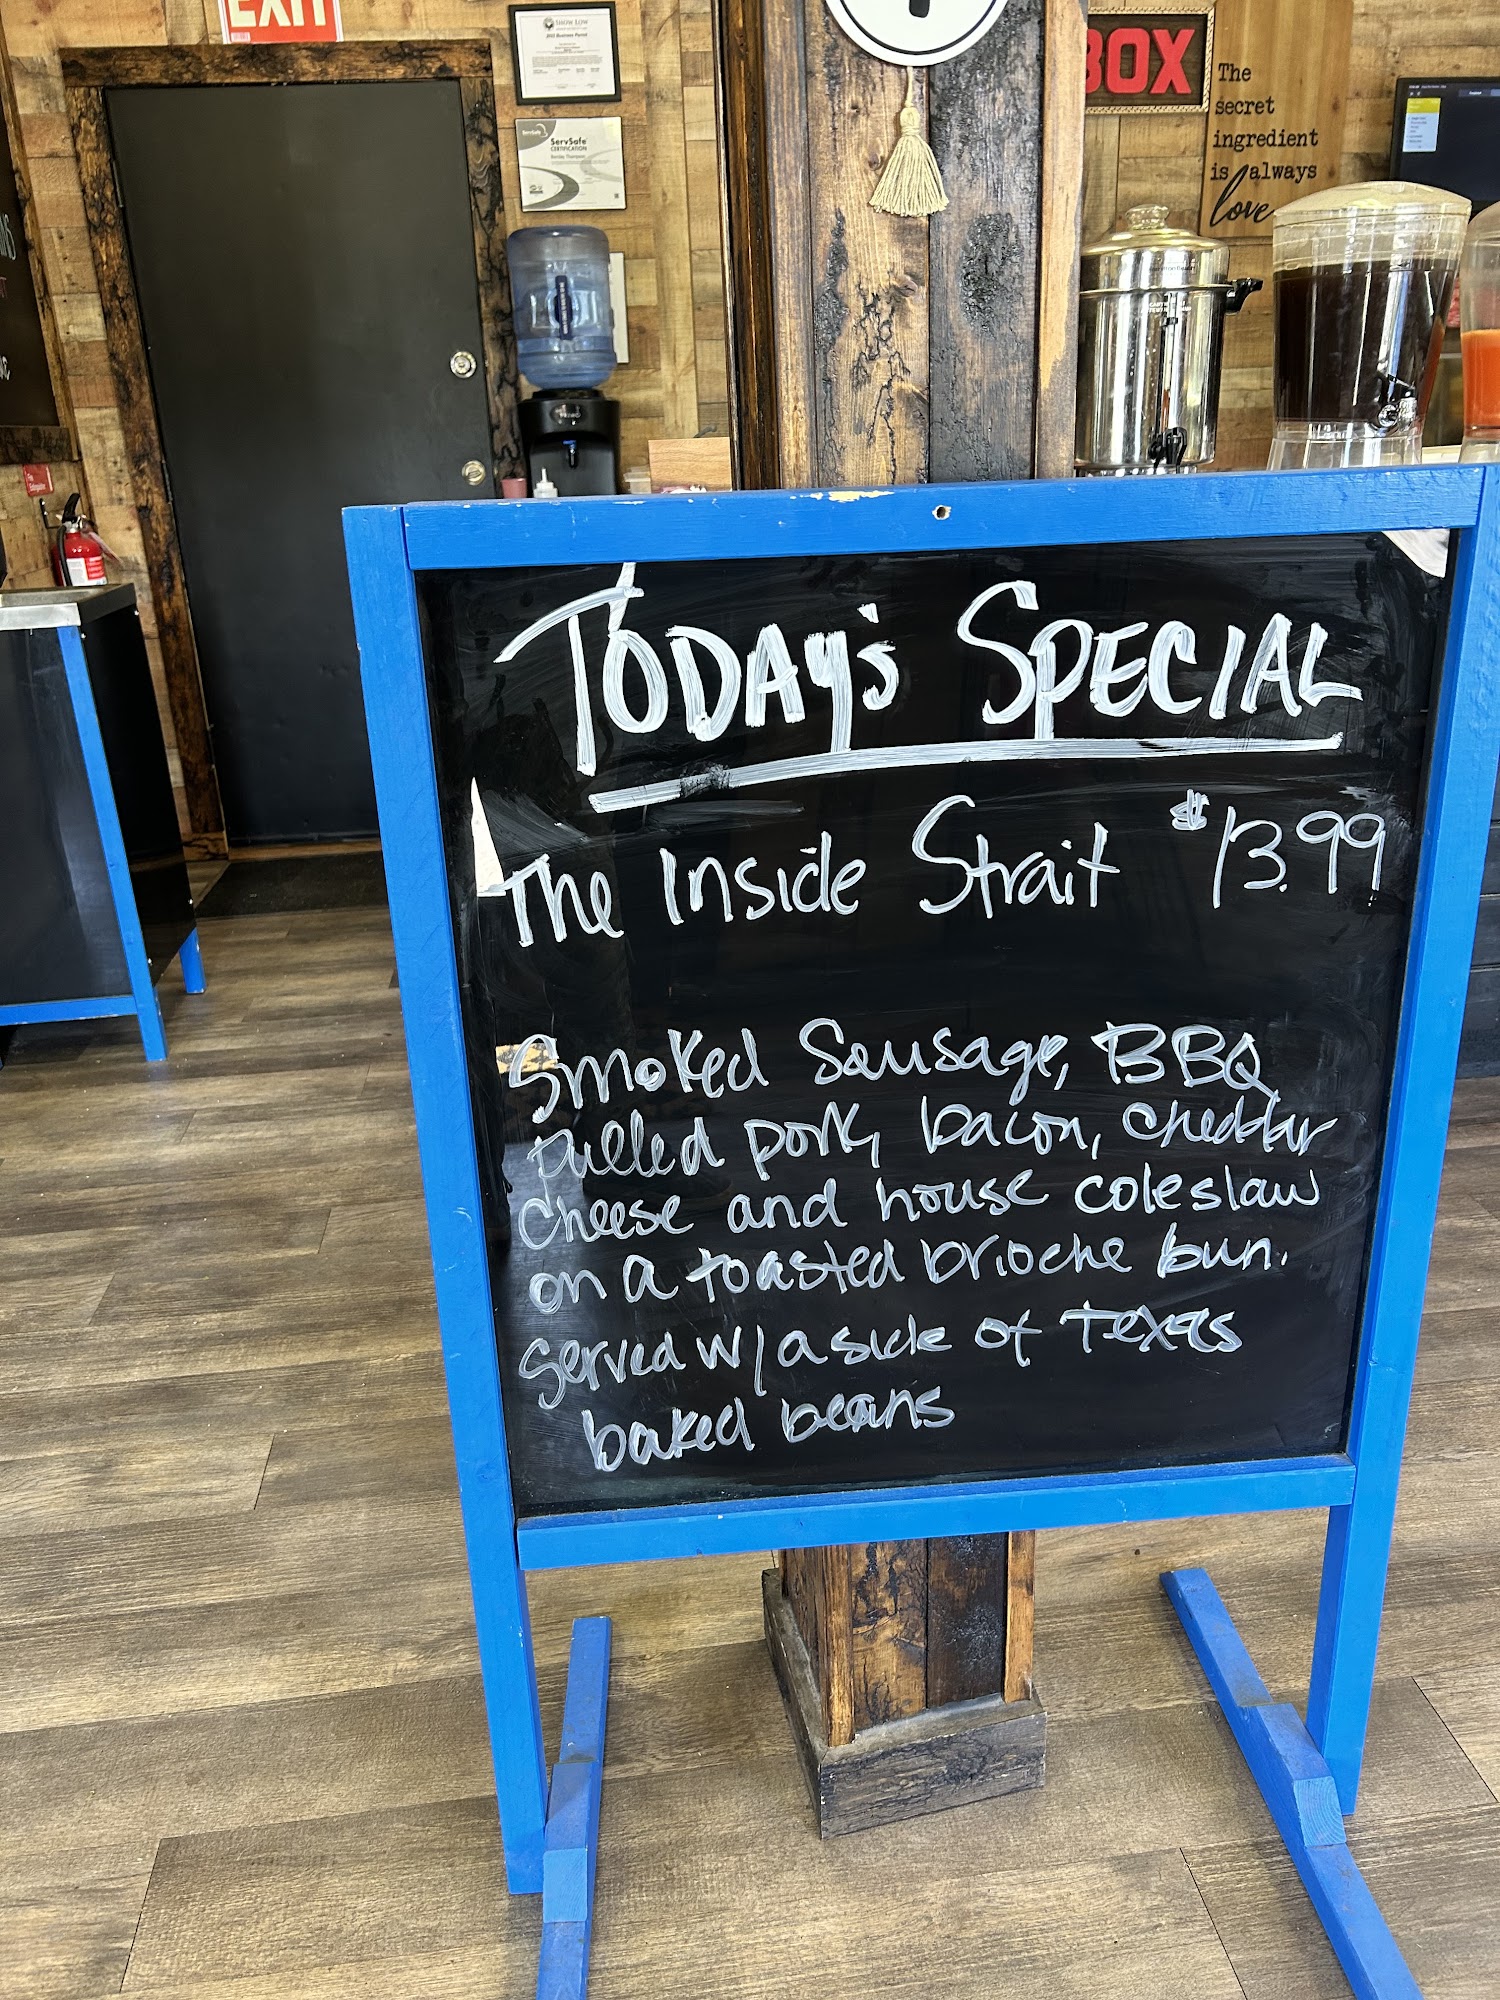 EXIT
SHOW LOW
2023 Business Permit
ServSafe
CERTIFICATION
BOX
The
secret
ingredient
is always
love
PRIMO
Fire
Extinguisher
TODAY'S SPECIAL
The Inside Strait $13.99
Smoked Sausage, BBQ
pulled pork, bacon, cheddar
cheese and house coleslaw
on a toasted brioche bun.
Served w/ a side of Texas
baked beans